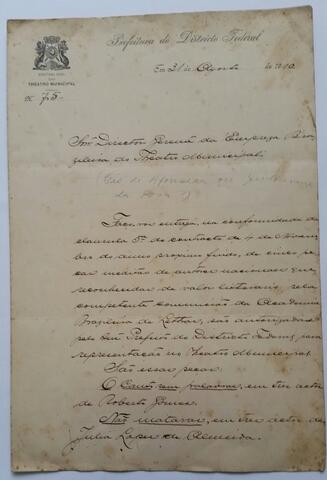 Prefeitura do Districto Federal
THEATRO MUNICIPAL
Nº 75.
Em 31 de Agosto de 1910.
Snr. Director Gerente da Empreza Bra-
zileira do Theatro Municipal.
Faço-vos entrega, na conformidade da
clausula 5ª do contracto de 4 de Novem-
bro do anno proximo findo, de cinco pe-
ças ineditas de autores nacionaes que,
reconhecidas de valor litterario, pela
competente commissão da Academia
Brazileira de Lettras, são autorizadas
pelo Snr. Prefeito do Districto Federal, para
representação no Theatro Municipal.
São essas peças:
O Canto sem palavras, em tres actos
de Roberto Gomes.
Não matarás, em tres actos de
Julia Lopes de Almeida.